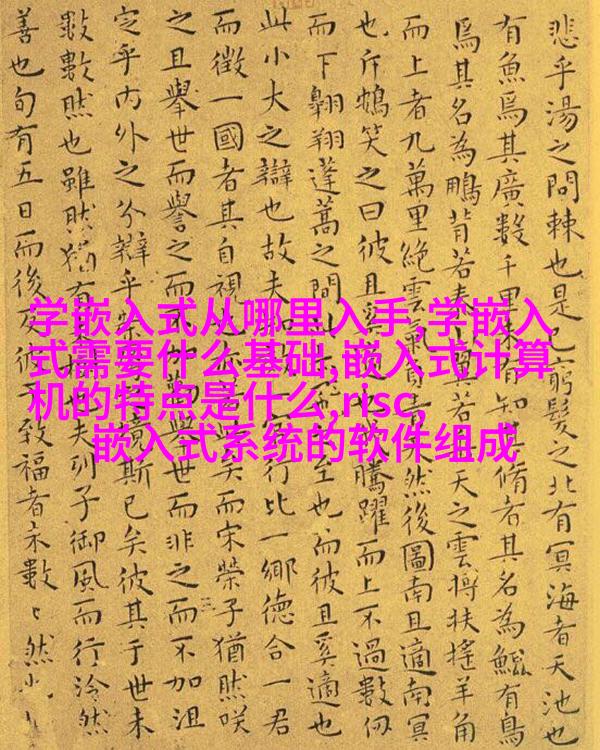 学嵌入式从哪里入手,学嵌入
式需要什么基础,嵌入式计算
机的特点是什么,risc,
嵌入式系统的软件组成
悲乎湯之問棘也是已窮髮之北有冥海者天池也
有魚焉其廣數千里未有知其脩者其名為鯤有鳥
焉其名為鵬背若泰山翼若垂天之雲摶扶搖羊角
而上者九萬里絕雲氣負青天然後圖南且適南冥
也斥鴳笑之曰彼且奚騰躍而上不過數仞
而下翱翔蓬蒿之間此至也而彼且奚適也
此小大之辯也故夫知行比一鄉德合一君
而徵一國者其自視此矣而宋榮子猶然咲
之且舉世而譽之而不加舉世而非之而不加沮
定乎內外之分辯乎榮境斯已矣彼其于世未
數數然也雖然猶有夫列子御風而行泠然
善也旬有五日而後反彼于致福者未數〻然